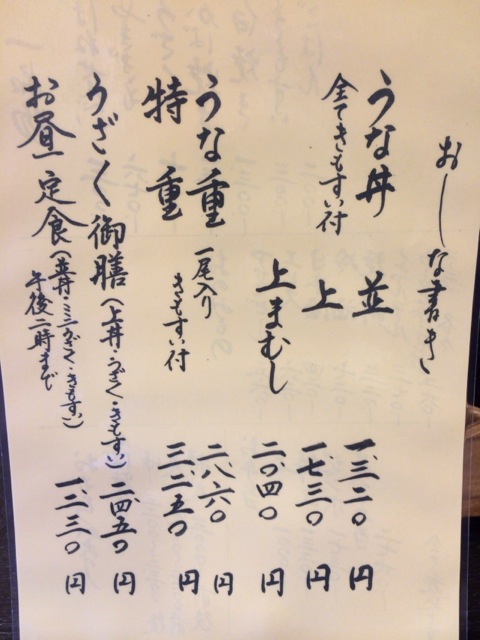 おしな書き
うな丼 並 一、三二〇 円
全てきもすい付 上 一、七三〇 円
上まむし 二、〇四〇 円
うな重 一尾入り 二、八六〇 円
きもすい付
特重 三、二五〇 円
うざく御膳(上丼・うざく・きもすい) 二、四五〇 円
お昼定食(並丼・ミニうざく・きもすい) 一、二三〇 円
午後二時まで